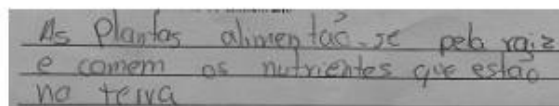 As Plantas alimentão-se pela raiz
e comem os nutrientes que estão
na terra